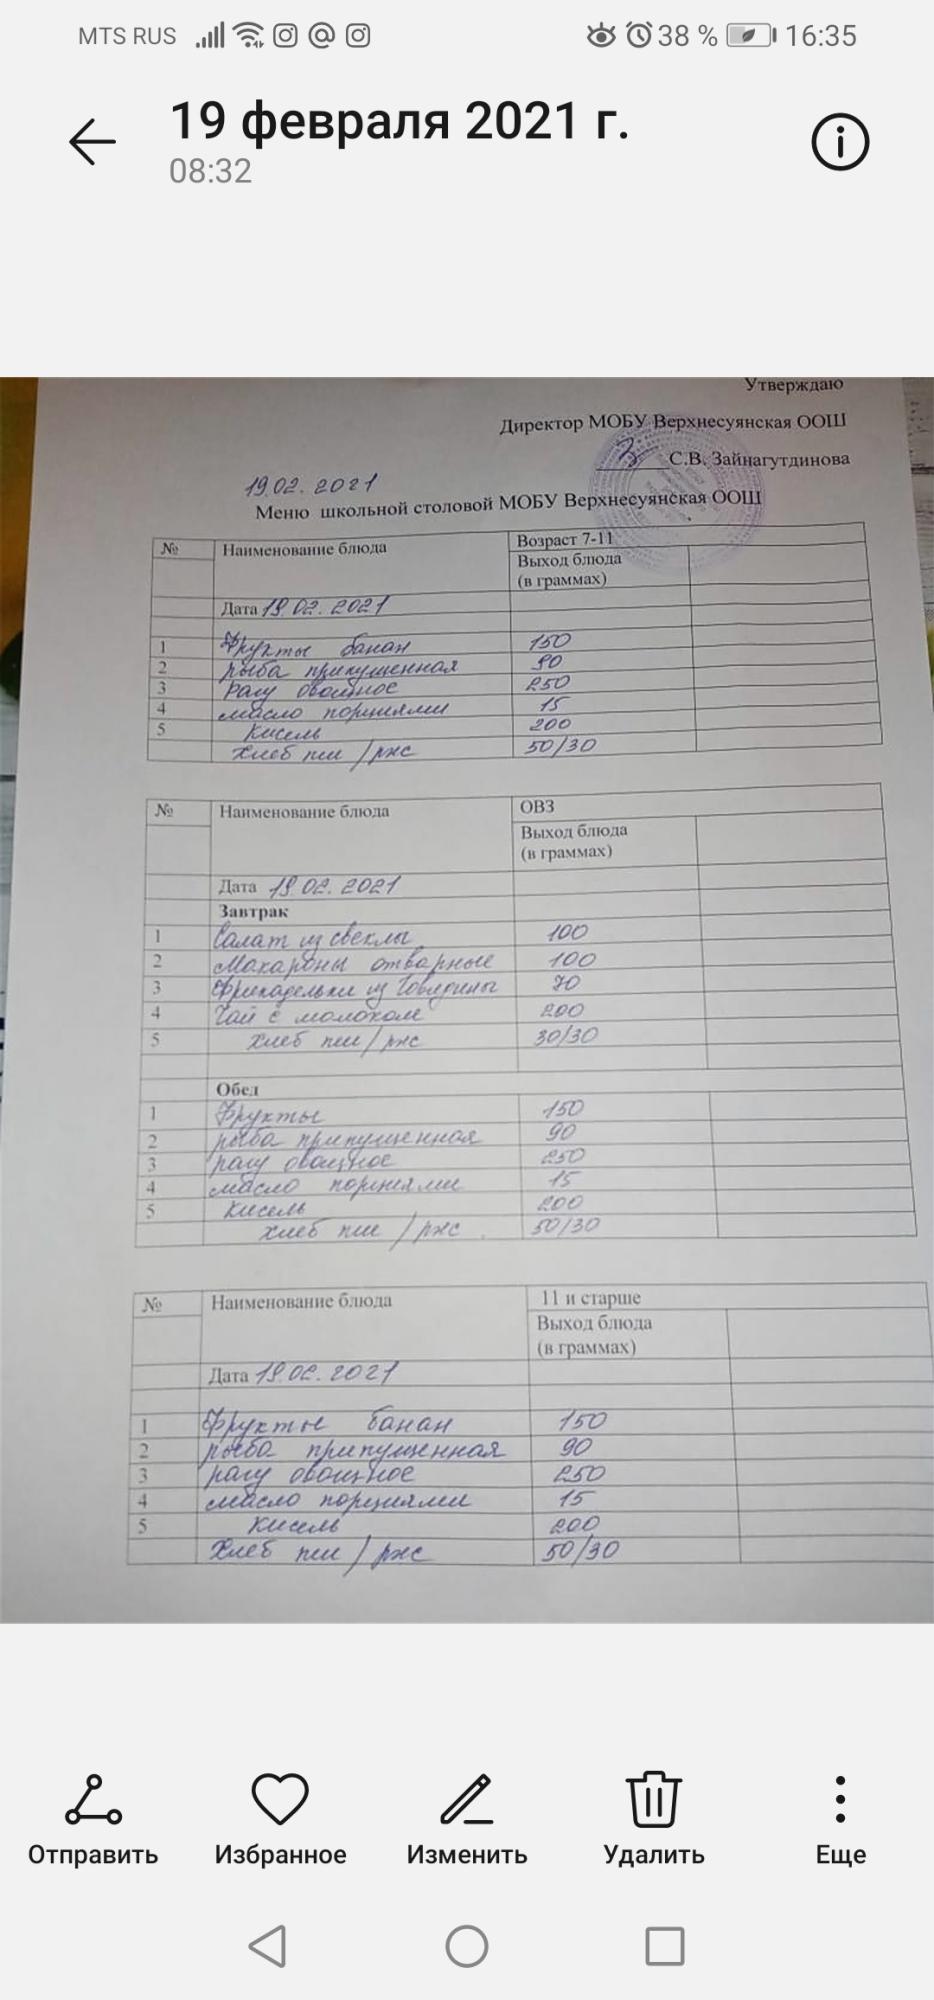 MTS RUS 38 % 16:35
19 февраля 2021 г.
08:32
Утверждаю
Директор МОБУ Верхнесуянская ООШ
С.В. Зайнагутдинова
19.02.2021
Меню школьной столовой МОБУ Верхнесуянская ООШ
№ Наименование блюда Возраст 7-11
Выход блюда
(в граммах)
Дата 19.02.2021
1 Фрукты банан 150
2 рыба припущенная 90
3 рагу овощное 250
4 масло порциями 15
5 Кисель 200
Хлеб пш/рж 50/30
№ Наименование блюда ОВЗ
Выход блюда
(в граммах)
Дата 19.02.2021
Завтрак
1 Салат из свеклы 100
2 Макароны отварные 100
3 Фрикадельки из говядины 70
4 Чай с молоком 200
5 Хлеб пш/рж 30/30
Обед
1 Фрукты 150
2 рыба припущенная 90
3 рагу овощное 250
4 масло порциями 15
5 Кисель 200
Хлеб пш/рж 50/30
№ Наименование блюда 11 и старше
Выход блюда
(в граммах)
Дата 19.02.2021
1 Фрукты банан 150
2 рыба припущенная 90
3 рагу овощное 250
4 масло порциями 15
5 Кисель 200
Хлеб пш/рж 50/30
Отправить Избранное Изменить Удалить Еще